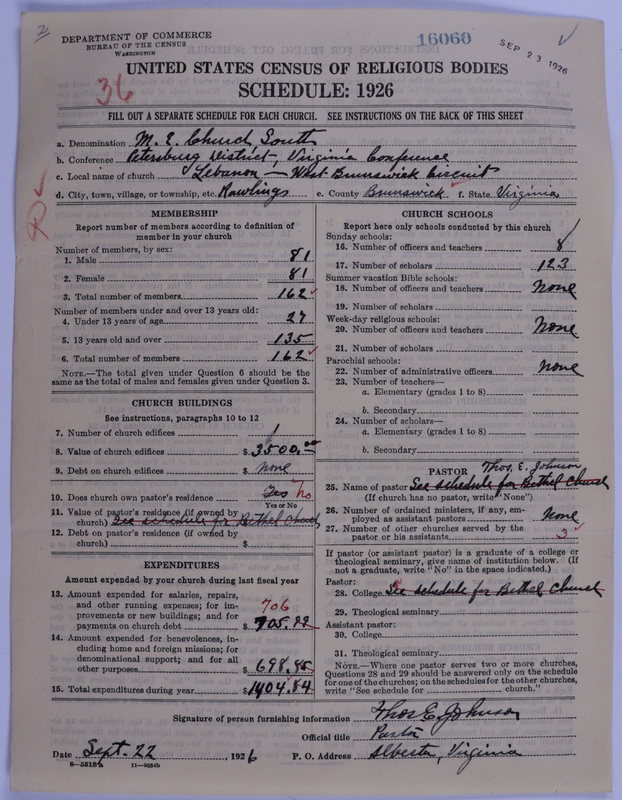 2
DEPARTMENT OF COMMERCE
BUREAU OF THE CENSUS
WASHINGTON
16060
SEP 23 1926
36
UNITED STATES CENSUS OF RELIGIOUS BODIES
SCHEDULE: 1926
FILL OUT A SEPARATE SCHEDULE FOR EACH CHURCH. SEE INSTRUCTIONS ON THE BACK OF THIS SHEET
a. Denomination M. E. Church South
b. Conference Petersburg District, Virginia Conference
c. Local name of church Lebanon — West Brunswick Circuit
d. City, town, village, or township, etc. Rawlings e. County Brunswick f. State Virginia
MEMBERSHIP
Report number of members according to definition of
member in your church
Number of members, by sex:
1. Male 81
2. Female 81
3. Total number of members 162
Number of members under and over 13 years old:
4. Under 13 years of age 27
5. 13 years old and over 135
6. Total number of members 162
NOTE.—The total given under Question 6 should be
the same as the total of males and females given under Question 3.
CHURCH BUILDINGS
See instructions, paragraphs 10 to 12
7. Number of church edifices 1
8. Value of church edifices $ 3500.00
9. Debt on church edifices $ None
10. Does church own pastor's residence Yes No
Yes or No
11. Value of pastor's residence (if owned by
church) See schedule for Bethel Church
12. Debt on pastor's residence (if owned by
church) $
EXPENDITURES
Amount expended by your church during last fiscal year
13. Amount expended for salaries, repairs,
and other running expenses; for im-
provements or new buildings; and for
payments on church debt $ 705.99
706
14. Amount expended for benevolences, in-
cluding home and foreign missions; for
denominational support; and for all
other purposes $ 698.85
15. Total expenditures during year $ 1404.84
CHURCH SCHOOLS
Report here only schools conducted by this church
Sunday schools:
16. Number of officers and teachers 8
17. Number of scholars 123
Summer vacation Bible schools:
18. Number of officers and teachers None
19. Number of scholars
Week-day religious schools:
20. Number of officers and teachers None
21. Number of scholars
Parochial schools:
22. Number of administrative officers None
23. Number of teachers—
a. Elementary (grades 1 to 8)
b. Secondary
24. Number of scholars—
a. Elementary (grades 1 to 8)
b. Secondary
PASTOR Thos. E. Johnson
25. Name of pastor See schedule for Bethel Church
(If church has no pastor, write "None")
26. Number of ordained ministers, if any, em-
ployed as assistant pastors None
27. Number of other churches served by the
pastor or his assistants 3
If pastor (or assistant pastor) is a graduate of a college or
theological seminary, give name of institution below. (If
not a graduate, write "No" in the space indicated.)
Pastor:
28. College See schedule for Bethel Church
29. Theological seminary
Assistant pastor:
30. College
31. Theological seminary
NOTE.—Where one pastor serves two or more churches,
Questions 28 and 29 should be answered only on the schedule
for one of the churches; on the schedules for the other churches,
write "See schedule for church."
Signature of person furnishing information Thos E. Johnson
Official title Pastor
Date Sept. 22, 1926 P. O. Address Alberta, Virginia
8—5518a 11—9054b